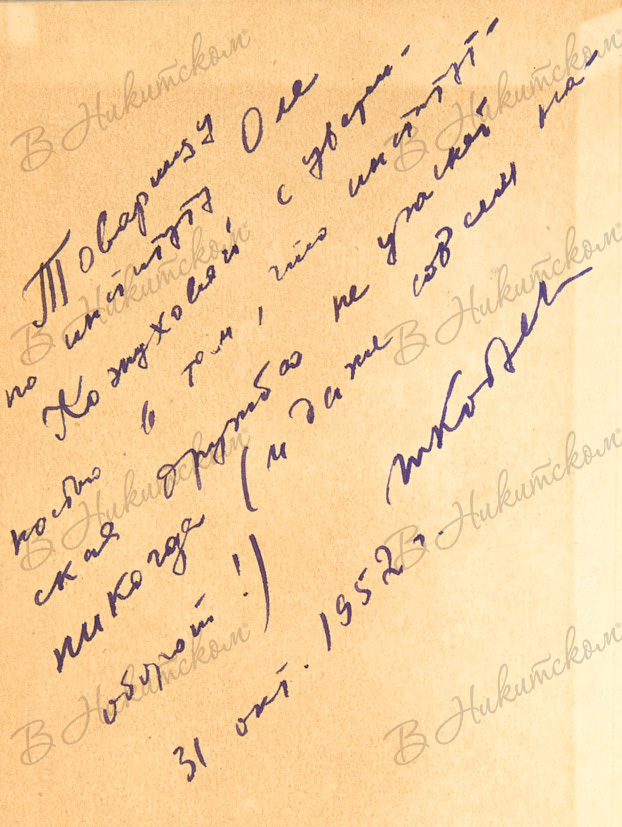 Товарищу Оле
по институту
Кожуховой с уверен-
ностью в том, что институт-
ская дружба не угаснет
никогда (и даже совсем на-
оборот!)
ИКобзев
31 окт. 1952 г.
В Никитском
В Никитском
В Никитском
В Никитском
В Никитском
В Никитском
В Никитском
В Никитском